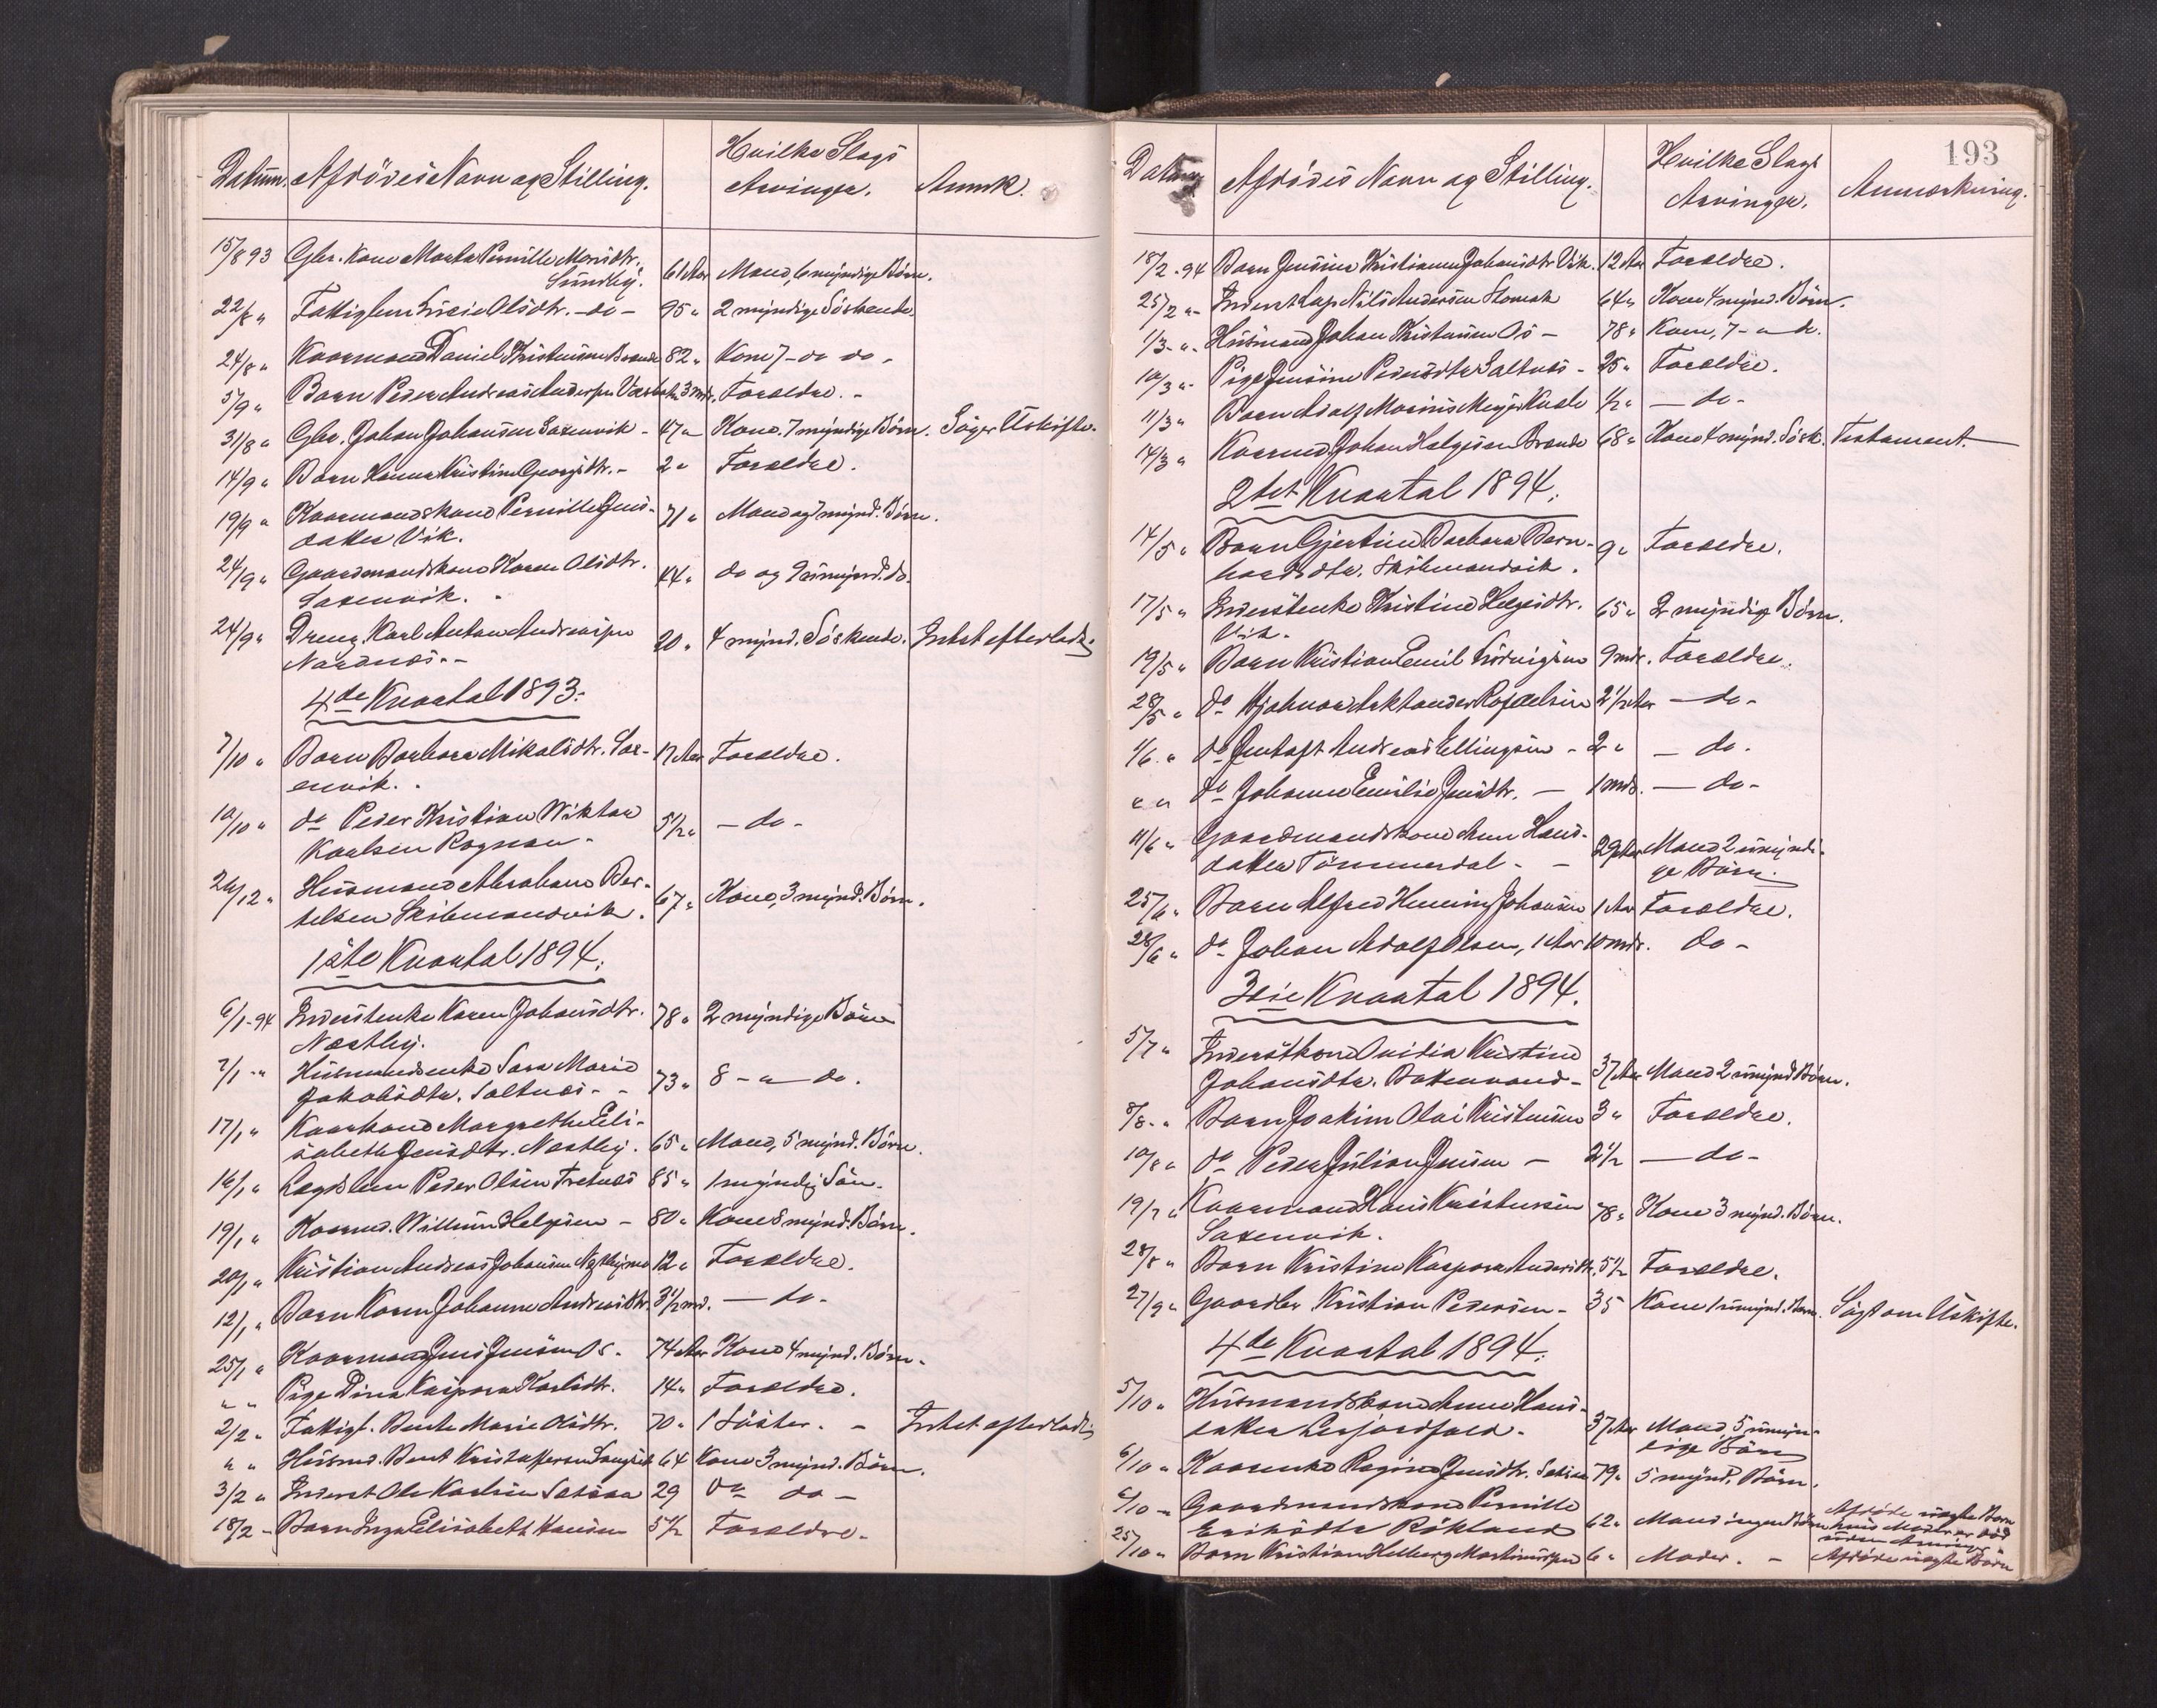 Datum. Afdødes Navn og Stilling. Hvilke Slags Arvinger. Anmk.
15/8 93 Gbr. Kone Marta Pernille Monsdtr. Sundby. 61 Aar Mand, 6 myndige Børn.
22/8 " Fattiglem Lucie Olsdtr. - do - 95 " 2 myndige Söskende.
24/8 " Kaarmand Daniel Kristensen Brænde 82 " Kone 7 - do do -
5/9 " Barn Peder Andreas Anderssen 3 mdr. Forældre. -
31/8 " Gbr. Johan Johansen Saxenvik - 47 " Kone. 7 myndige Børn. Søger Uskifte.
14/9 " Barn Hanna Kristine Georgsdtr. - 2 " Forældre.
19/9 " Kaarmandskone Pernille Jens-
datter Vik. 71 " Mand og 7 mynd. Børn.
24/9 " Gaardmandskone Karen Olsdtr.
Saxenvik. 44 " do og 9 umynd. do.
24/9 " Dreng Karl Anton Andreassen
Nordnes. - 20 " 4 mynd. Söskende. Intet efterladt.
4de Kvartal 1893.
7/10 " Barn Barbara Mikalsdtr. Sax-
envik. 17 Aar Forældre.
10/10 " do Peder Kristian Wiktor
Karlsen Rognan - 5 1/2 " - do -
26/12 " Husmand Abraham Ber-
telsen Skibmandvik. 67 " Kone, 3 mynd. Børn.
1ste Kvartal 1894.
6/1-94 Inderstenke Karen Johansdtr.
Næstby. 78 " 2 myndige Børn
7/1 - " Husmandsenke Sara Marie
Jakobsdtr. Saltnes - 73 " 8 - " - do.
17/1 " Kaarkone Margrethe Eli-
sabeth Jensdtr. Næstby. 65 " Mand, 5 mynd. Børn.
16/1 " Lægdslem Peder Olsen Fretnes 85 " 1 myndig Søn.
19/1 " Kaarmd. Willum Helgesen - 80 " Kone 8 mynd. Børn.
20/1 " Kristian Andreas Johansen 12 " Forældre.
12/1 " Barn Karen Johanne Andreasdtr. 3 1/2 md. - do -
25/1 " Kaarmand Jens Jensen Os - 74 Aar Kone 4 mynd. Børn -
" " Pige Dina Kaspara Karlsdtr. 14 " Forældre.
2/2 " Fattigl. Bente Marie Olsdtr. 70 " 1 Søster. - Intet efterladt.
" " Husmd. Bent Kristoffersen 64 Kone 3 mynd. Børn.
3/2 " Inderst Ole Karlsen 29 do do -
18/2 - Barn Inga Elisabeth Hansen 5 1/2 Forældre -
193
Datum Afdødes Navn og Stilling. Hvilke Slags Arvinger. Anmærkning.
18/2 - 94 Barn Jensine Kristianna Johansdtr. Vik. 12 Aar Forældre.
25/2 " - Inderst Lap Nils Andersen 64 " Kone 4 mynd. Børn.
1/3 - " - Husmand Johan Kristensen Os - 78 " Kone, 7 - " do.
10/3 " - Pige Jensine Pedersdtr Saltnes - 25 " Forældre.
11/3 " Barn Adolf Marinus Meyer 1/2 " - do -
14/3 " Kaarmd Johan Helgesen Brænde 68 " Kone 4 mynd. Søsk. Testament.
2det Kvartal 1894.
14/5 " Barn Gjertine Barbara Bern-
hardsdtr. Skibmandvik. 9 " Forældre.
17/5 " Inderstenke Kristine Helgesdtr.
Vik. 65 " 2 myndige Børn.
19/5 " Barn Kristian Emil Ludvigsen 9 mdr. Forældre.
28/5 " do Hjalmar Rafaelsen 2 1/2 Aar - do -
1/6 " do Gustaft Andreas Ellingsen - 2 " - do -
" " do Johanne Emilie Jensdtr. - 1 mdr. - do -
11/6 " Gaardmandskone Ane Hans-
datter Tömmerdal - 29 Aar Mand 2 umyndi-
ge Børn.
25/6 " Barn Alfred Henning Johansen 1 Aar Forældre.
28/6 " do Johan Adolf Olsen, 1 Aar 10 mdr. do -
3die Kvartal 1894.
5/7 " Inderstkone Ovidia Kristine
Johansdtr. Bottenvand - 37 Aar Mand 2 umynd Børn.
8/8 - " Barn Joakim Olai Kristensen 3 " Forældre.
10/8 " do Peder Julian Jensen - 2 1/2 - do -
19/7 " Kaarmand Hans Kristensen
Saxenvik. 78 " Kone 3 mynd. Børn.
28/8 " Barn Kristine Kaspara Andersdtr. 5 1/2 Forældre.
27/9 " Gaardbr Kristian Pedersen - 35 Kone 1 umynd. Barn. Søgt om Uskifte.
4de Kvartal 1894.
5/10 " Husmandskone Anne Hans-
datter - 37 Aar Mand, 5 umyn-
dige Børn
6/10 " Kaarenke Regine Jensdtr. 79 " 5 mynd. Børn.
6/10 - Gaardmandskone Pernille
Eriksdtr Rökland 62 " Mand ingen Børn Afdøde uægte Barn
hvis Moder er død
uden Arvinge
25/10 " Barn Kristian Helberg Martinussen 6 " Moder. - Afdøde uægte Barn